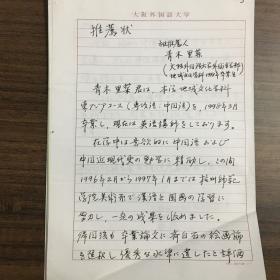 大阪外国語大学
推薦状
被推薦人
青木里菜
青木里菜君は、本学地域文化学科
東アジアコース(専攻語:中国語)を、1998年3月
卒業し、現在は英語講師をしております。
在学中は意欲的に中国語および
中国近現代史の勉学に精励し、この間
1996年2月から1997年1月までは杭州師範
学院美術系で漢語と国画の学習に
努力し、一定の成果を収めました。
帰国後も卒業論文に斉白石の絵画論
を選択し優秀な水準に達したと評価